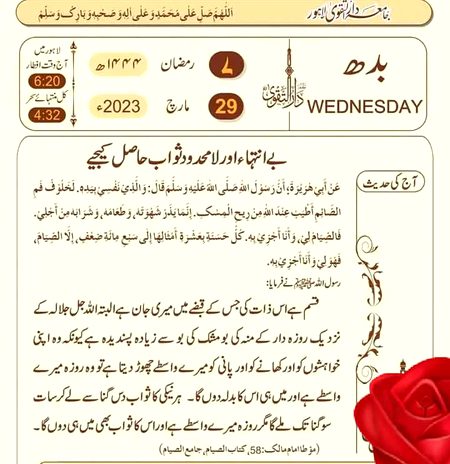 جامعہ دار التقویٰ لاہور
اَللّٰهُمَّ صَلِّ عَلٰى مُحَمَّدٍ وَّعَلٰى اٰلِهٖ وَصَحْبِهٖ وَبَارِكْ وَسَلِّمْ
بدھ
WEDNESDAY
دار التقویٰ
۷ رمضان ۱۴۴۴ھ
29 مارچ 2023ء
لاہور میں
آج وقت افطار
6:20
کل منتہائے سحر
4:32
آج کی حدیث
بے انتہاء اور لا محدود ثواب حاصل کیجیے
عَنْ أَبِي هُرَيْرَةَ، أَنَّ رَسُولَ اللهِ صَلَّى اللهُ عَلَيْهِ وَسَلَّمَ قَالَ: وَالَّذِي نَفْسِي بِيَدِهِ. لَخَلُوفُ فَمِ
الصَّائِمِ أَطْيَبُ عِنْدَ اللهِ مِنْ رِيحِ الْمِسْكِ. إِنَّمَا يَذَرُ شَهْوَتَهُ، وَطَعَامَهُ، وَشَرَابَهُ مِنْ أَجْلِي.
فَالصِّيَامُ لِي، وَأَنَا أَجْزِي بِهِ. كُلُّ حَسَنَةٍ بِعَشْرَةِ أَمْثَالِهَا إِلَى سَبْعِ مِائَةِ ضِعْفٍ، إِلَّا الصِّيَامَ،
فَهُوَ لِي وَأَنَا أَجْزِي بِهِ.
رسول اللہ ﷺ نے فرمایا:
قسم ہے اس ذات کی جس کے قبضے میں میری جان ہے البتہ اللہ جل جلالہ کے
نزدیک روزہ دار کے منہ کی بو مشک کی بو سے زیادہ پسندیدہ ہے کیونکہ وہ اپنی
خواہشوں کو اور کھانے کو اور پانی کو میرے واسطے چھوڑ دیتا ہے تو وہ روزہ میرے
واسطے ہے اور میں ہی اس کا بدلہ دوں گا۔ ہر نیکی کا ثواب دس گنا سے لے کر سات
سو گنا تک ملے گا مگر روزہ میرے واسطے ہے اور اس کا ثواب بھی میں ہی دوں گا۔
(مؤطا امام مالک: 58، کتاب الصیام، جامع الصیام)